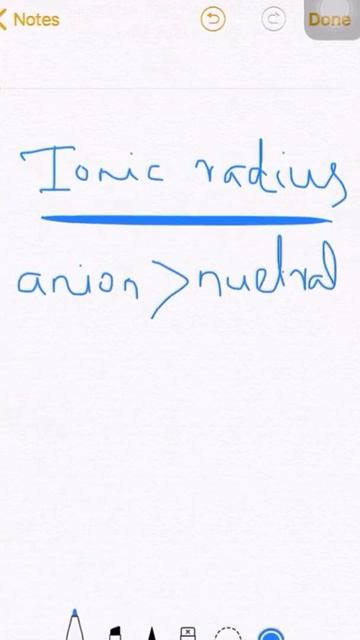 Notes
Done
Ionic radius
anion > nuetral